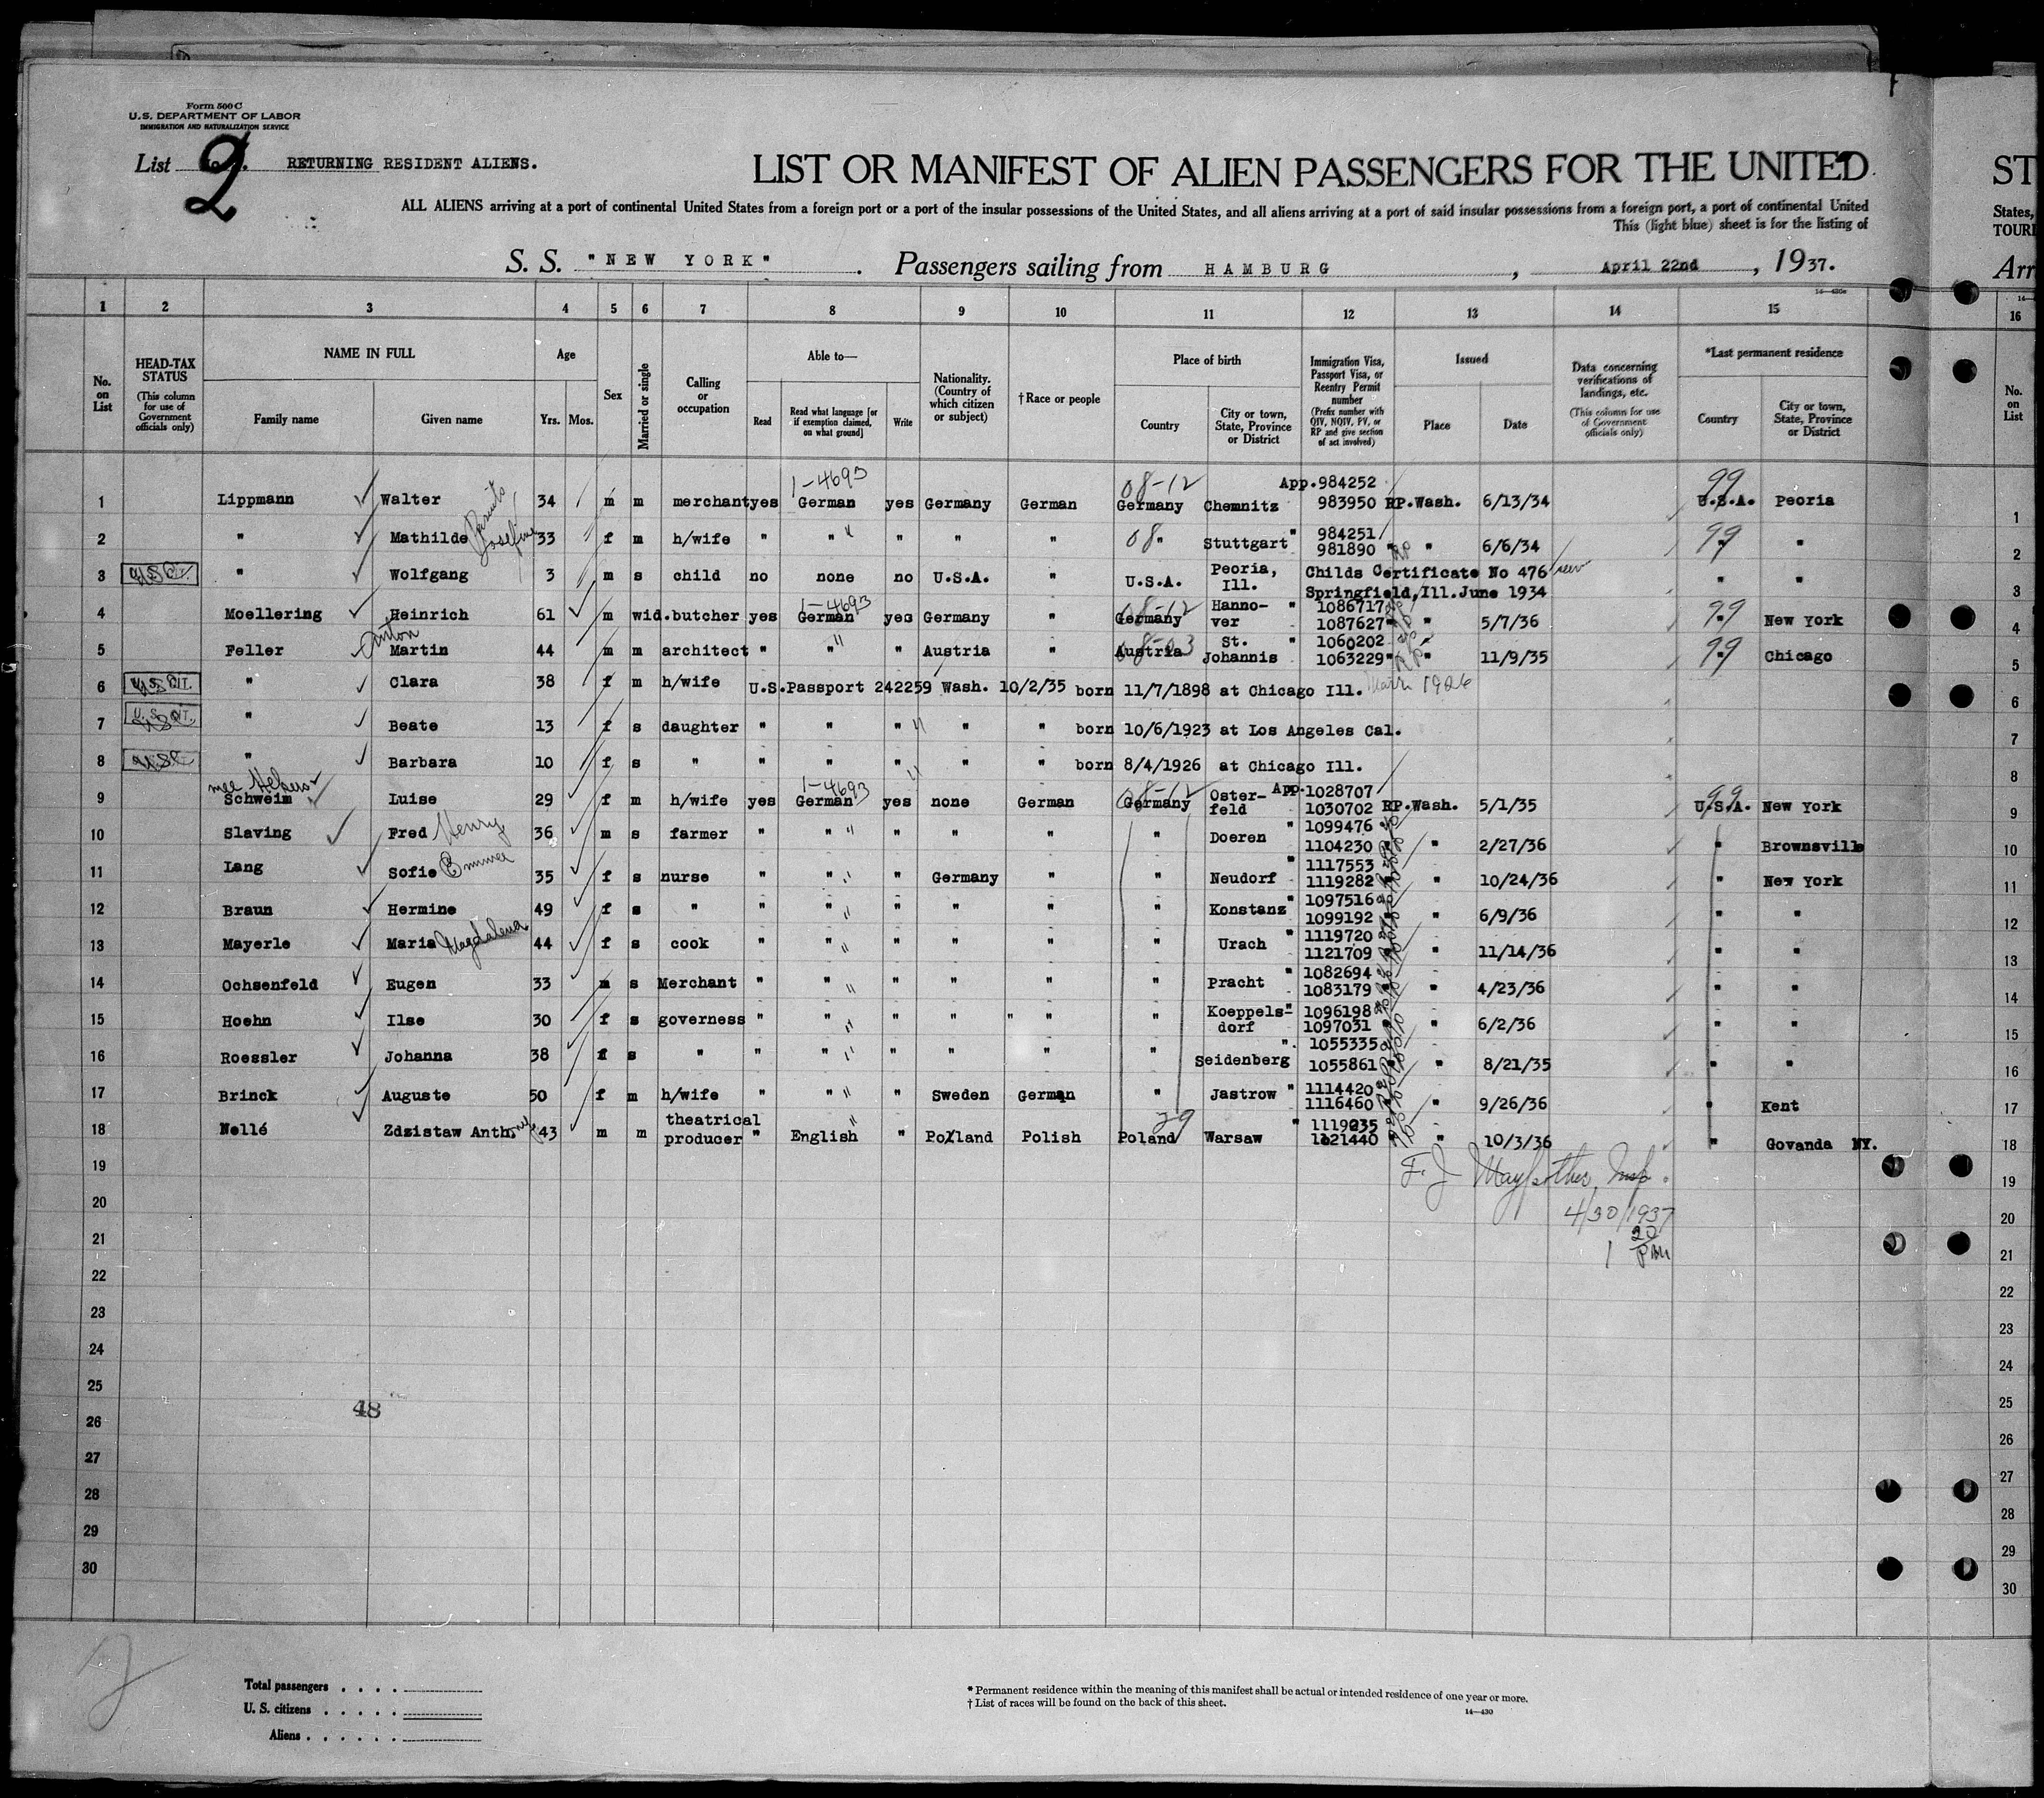 Form 500 C
U.S. DEPARTMENT OF LABOR
IMMIGRATION AND NATURALIZATION SERVICE
List 2 RETURNING RESIDENT ALIENS.
LIST OR MANIFEST OF ALIEN PASSENGERS FOR THE UNITED
ST
ALL ALIENS arriving at a port of continental United States from a foreign port or a port of the insular possessions of the United States, and all aliens arriving at a port of said insular possessions from a foreign port, a port of continental United
States,
This (light blue) sheet is for the listing of
TOURI
S. S. "NEW YORK". Passengers sailing from HAMBURG, April 22nd, 1937.
Arr
1 2 3 4 5 6 7 8 9 10 11 12 13 14 15 16
No. on List
HEAD-TAX STATUS
(This column for use of Government officials only)
NAME IN FULL
Family name Given name
Age
Yrs. Mos.
Sex
Married or single
Calling or occupation
Able to—
Read
Read what language [or if exemption claimed, on what ground]
Write
Nationality. (Country of which citizen or subject)
† Race or people
Place of birth
Country
City or town, State, Province or District
Immigration Visa, Passport Visa, or Reentry Permit number
(Prefix number with QIV, NQIV, PV, or RP and give section of act involved)
Issued
Place Date
Data concerning verifications of landings, etc.
(This column for use of Government officials only)
*Last permanent residence
Country
City or town, State, Province or District
No. on List
1-4693 08-12 App.984252 99
1 Lippmann Walter 34 m m merchant yes German yes Germany German Germany Chemnitz 983950 RP.Wash. 6/13/34 U.S.A. Peoria 1
2 " Mathilde Josefine 33 f m h/wife " " " " " 08 " Stuttgart " 984251 981890 " " 6/6/34 99 " " 2
3 U.S.CIT. " Wolfgang 3 m s child no none no U.S.A. " U.S.A. Peoria, Ill. Childs Certificate No 476 Springfield,Ill.June 1934 " " 3
4 Moellering Heinrich 61 m wid. butcher yes 1-4693 German yes Germany " 08-12 Germany Hannover " 1086717 1087627 " " 5/7/36 99 " New York 4
5 Feller Anton Martin 44 m m architect " " " Austria " 08-03 Austria St. Johannis " 1060202 1063229 " " 11/9/35 99 " Chicago 5
6 U.S.CIT. " Clara 38 f m h/wife U.S.Passport 242259 Wash. 10/2/35 born 11/7/1898 at Chicago Ill. Marr. 1926 6
7 U.S.CIT. " Beate 13 f s daughter " " " " " born 10/6/1923 at Los Angeles Cal. 7
8 USC " Barbara 10 f s " " " " " " born 8/4/1926 at Chicago Ill. 8
9 nee Schweim Luise 29 f m h/wife yes 1-4693 German yes none German 08-12 Germany Osterfeld App.1028707 1030702 RP.Wash. 5/1/35 99 U.S.A. New York 9
10 Slaving Fred Henry 36 m s farmer " " " " " " Doeren " 1099476 1104230 " " 2/27/36 " Brownsville 10
11 Lang Sofie Emma 35 f s nurse " " " Germany " " Neudorf " 1117553 1119282 " " 10/24/36 " New York 11
12 Braun Hermine 49 f s " " " " " " " Konstanz " 1097516 1099192 " " 6/9/36 " " 12
13 Mayerle Maria Magdalena 44 f s cook " " " " " " Urach " 1119720 1121709 " " 11/14/36 " " 13
14 Ochsenfeld Eugen 33 m s Merchant " " " " " " Pracht " 1082694 1083179 " " 4/23/36 " " 14
15 Hoehn Ilse 30 f s governess " " " " " " Koeppelsdorf " 1096198 1097031 " " 6/2/36 " " 15
16 Roessler Johanna 38 f s " " " " " " " Seidenberg " 1055335 1055861 " " 8/21/35 " " 16
17 Brinck Auguste 50 f m h/wife " " " Sweden German " Jastrow " 1114420 1116460 " " 9/26/36 " Kent 17
18 Nellé Zdzistaw Anthony 43 m m theatrical producer " English " Poland Polish 29 Poland Warsaw " 1119235 1121440 " " 10/3/36 " Govanda NY. 18
19 19
20 4/30/1937 20
21 1 20 PM 21
22 22
23 23
24 24
25 25
48
26 26
27 27
28 28
29 29
30 30
2
Total passengers . . . .
U. S. citizens . . . . .
Aliens . . . . . .
* Permanent residence within the meaning of this manifest shall be actual or intended residence of one year or more.
† List of races will be found on the back of this sheet.
14—430